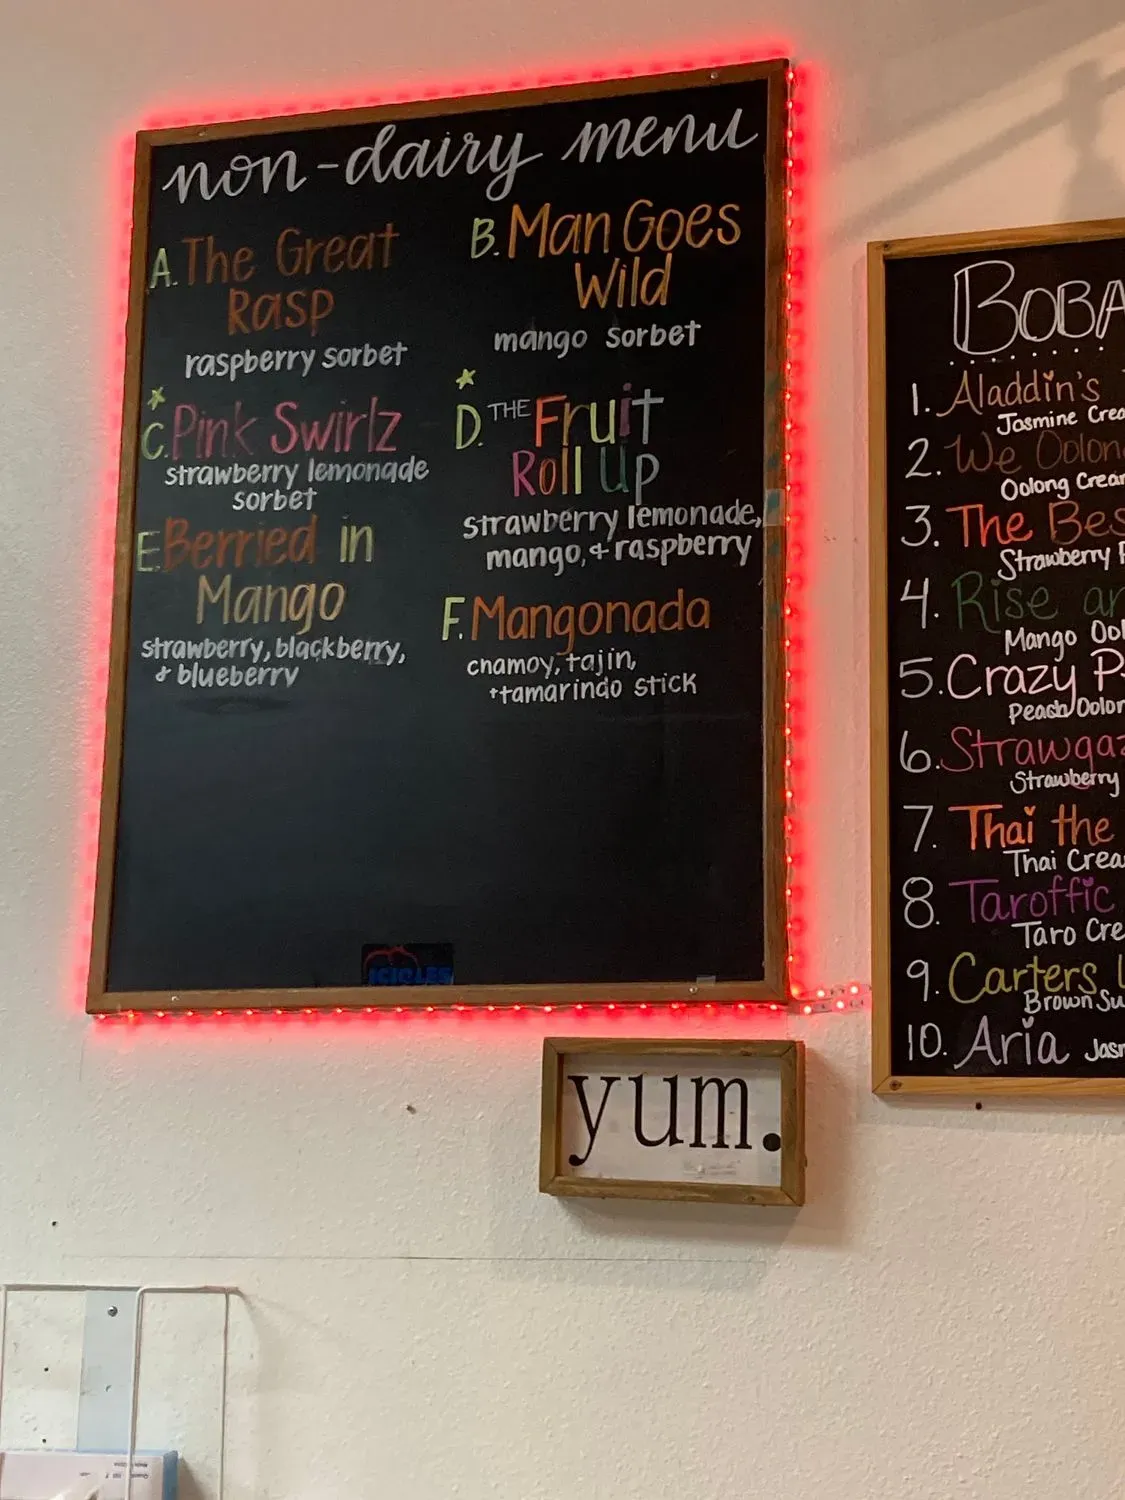 non-dairy menu
A. The Great
Rasp
raspberry sorbet
B. Man Goes
Wild
mango sorbet
C. Pink Swirlz
strawberry lemonade
sorbet
D. THE Fruit
Roll Up
strawberry lemonade,
mango, + raspberry
E. Berried in
Mango
strawberry, blackberry,
& blueberry
F. Mangonada
chamoy, tajin,
+tamarindo stick
ICICLES
yum.
BOBA
1. Aladdin's
Jasmine Crea
2. We Oolon
Oolong Cream
3. The Bes
Strawberry
4. Rise an
Mango Ool
5. Crazy P
Peach Oolon
6. Strawgaz
Strawberry
7. Thai the
Thai Crea
8. Taroffic
Taro Cre
9. Carters
Brown Su
10. Aria Jasm